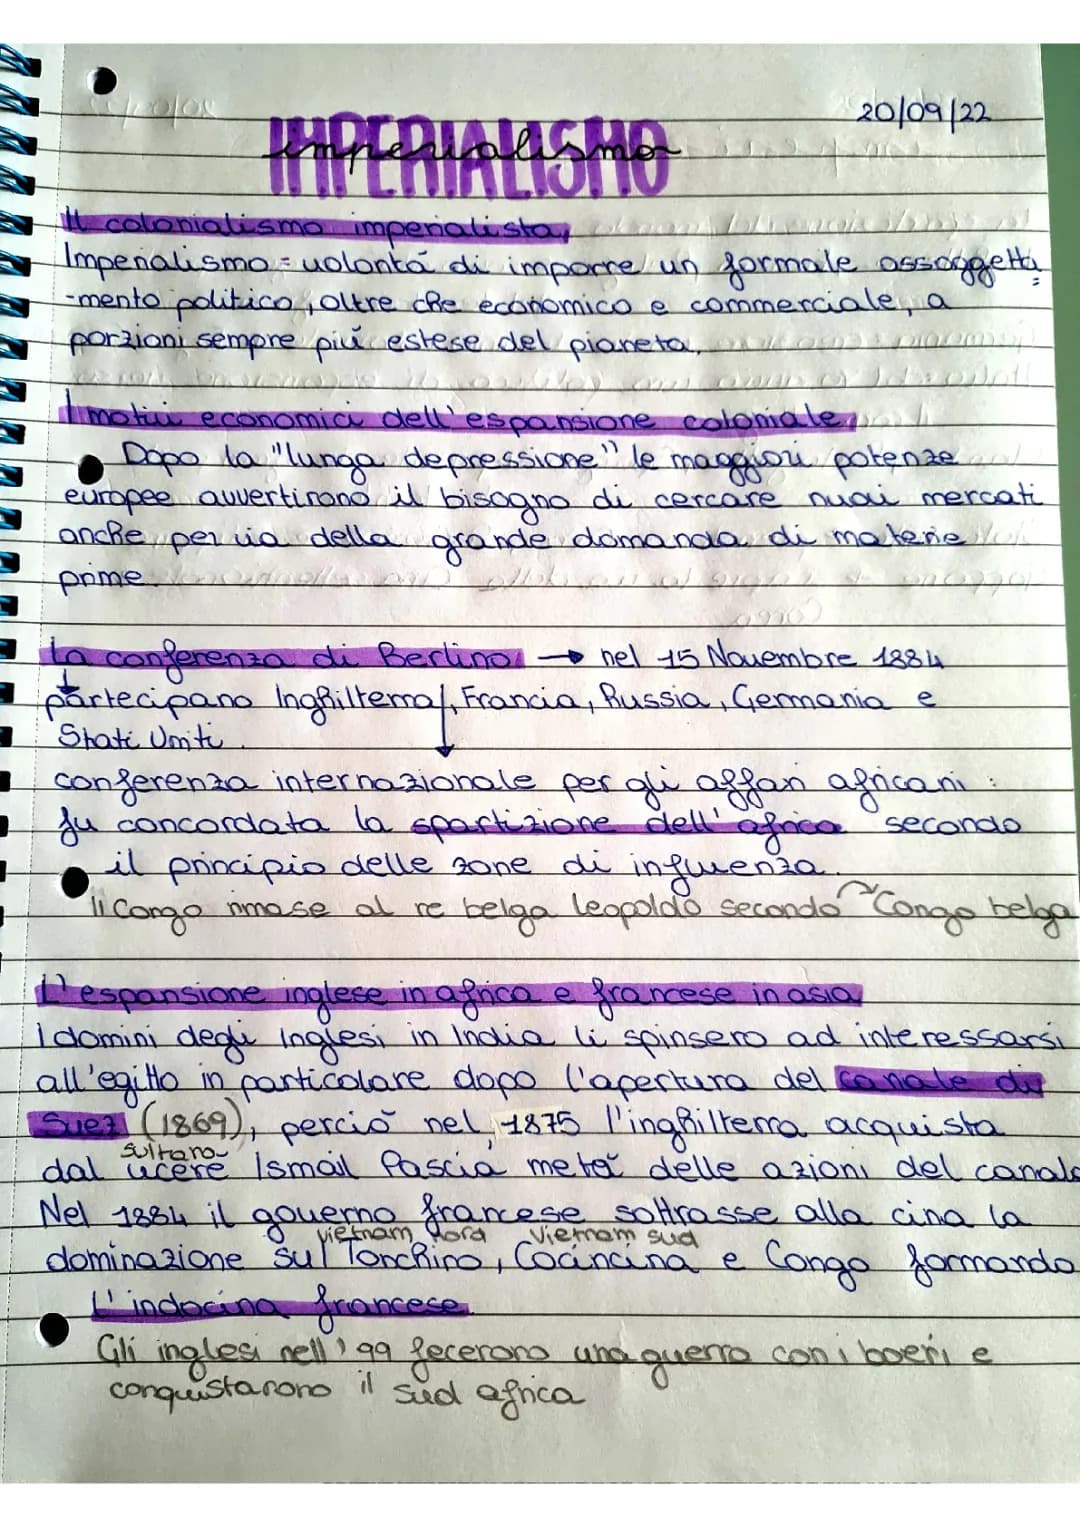 20/09/22
IMPERIALISMO
imperialismo
Il colonialismo imperialista
Imperialismo = volontá di imporre un formale assoggetta
-mento politico, oltre che economico e commerciale, a
porzioni sempre piú estese del pianeta.
I motivi economici dell'espansione coloniale
Dopo la "lunga depressione" le maggiori potenze
europee avvertirono il bisogno di cercare nuovi mercati
anche per via della grande domanda di materie
prime.
La conferenza di Berlino → nel 15 Novembre 1884
partecipano Inghilterra, Francia, Russia, Germania e
Stati Uniti.
conferenza internazionale per gli affari africani :
fu concordata la spartizione dell'africa secondo
il principio delle zone di influenza.
Il Congo rimase al re belga leopoldo secondo Congo belga
L'espansione inglese in africa e francese in asia
I domini degli Inglesi in India li spinsero ad interessarsi
all'egitto in particolare dopo l'apertura del canale di
Suez (1869), perciò nel 1875 l'inghilterra acquista
sultano
dal viceré Ismail Pasciá metá delle azioni del canale
Nel 1884 il governo francese sottrasse alla cina la
vietnam nord Vietnam sud
dominazione sul Tonchino, Cocincina e Congo formando
L'indocina francese.
Gli inglesi nell'99 fecerono una guerra con i boeri e
conquistarono il sud africa